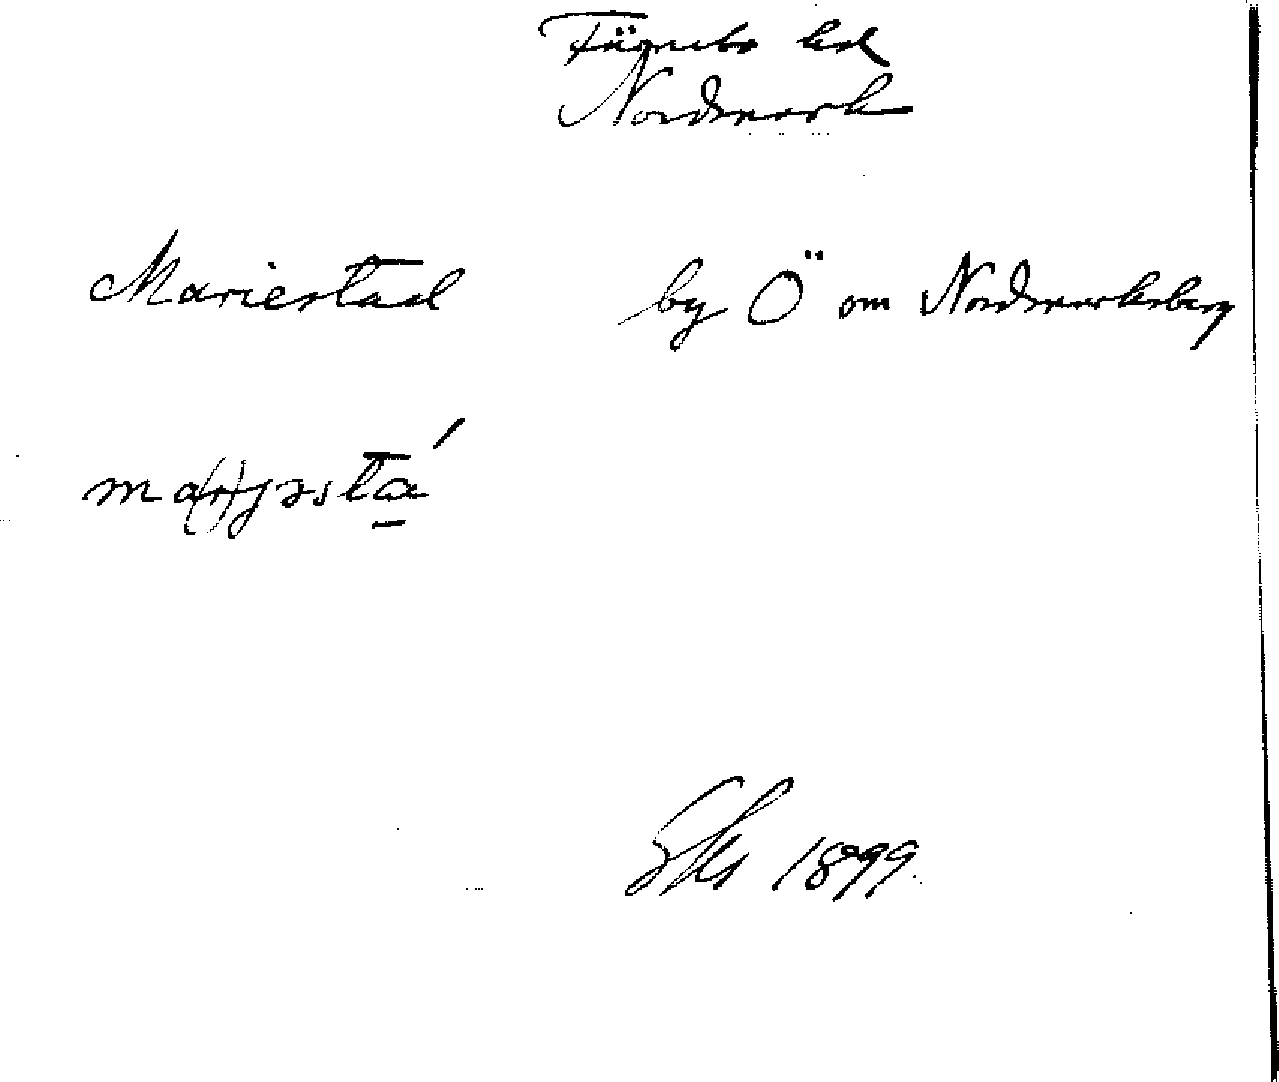 Färnebo hd
Nordmark
Mariestad by Ö om Nordmarksberg
ma(r)jəstá
1899.